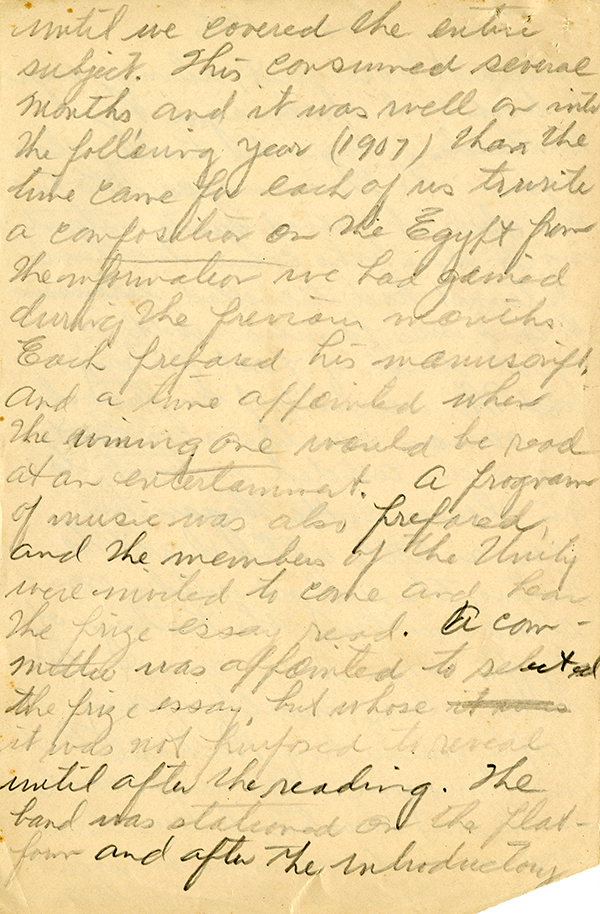 until we covered the entire
subject. This consumed several
months and it was well on into
the following year (1907) than the
time came for each of us to write
a composition on the Egypt from
the information we had gained
during the previous months.
Each prepared his manuscript,
and a time appointed when
the wining one would be read
at an entertainment. A program
of music was also prepared,
and the members of the Unity
were invited to come and hear
the prize essay read. A com-
mittee was appointed to select
the prize essay, but whose it was
it was not purposed to reveal
until after the reading. The
band was stationed on the plat-
form and after the introductory